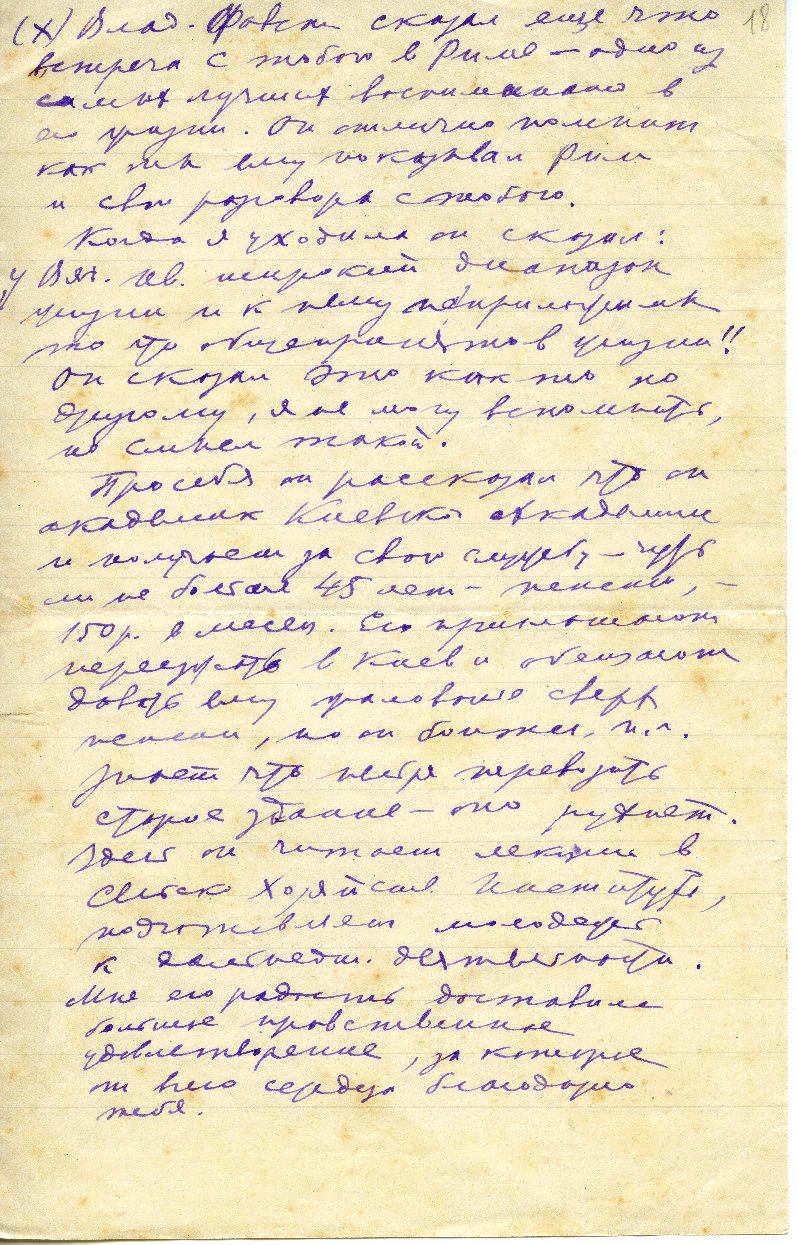 18
(x) Влад. сказал еще что
встреча с тобою в Риме — одно из
самых лучших воспоминаний в
его жизни. Он отлично помнит
как ты ему показывал Рим
и свои разговоры с тобою.
Когда я уходила он сказал:
У Вяч. Ив. широкий диапазон
жизни и к нему неприложимы
то что общепринято в жизни!!
Он сказал это как то по
другому, я не могу вспомнить,
но смысл такой.
Про себя он рассказал что он
академик Киевско Академии
и получает за свою службу — чуть
ли не больше 45 лет — пенсию, —
150 р. в месяц. Его приглашают
переезжать в Киев и обещают
давать ему жалованье сверх
пенсии, но он боится, п.ч.
знает что нельзя перевозить
старое здание — оно рухнет.
Здесь он читает лекции в
Институте,
подготовляет молодежь
к деятельности.
Мне его радость доставила
большое нравственное
удовлетворение, за которое
от всего сердца благодарю
тебя.